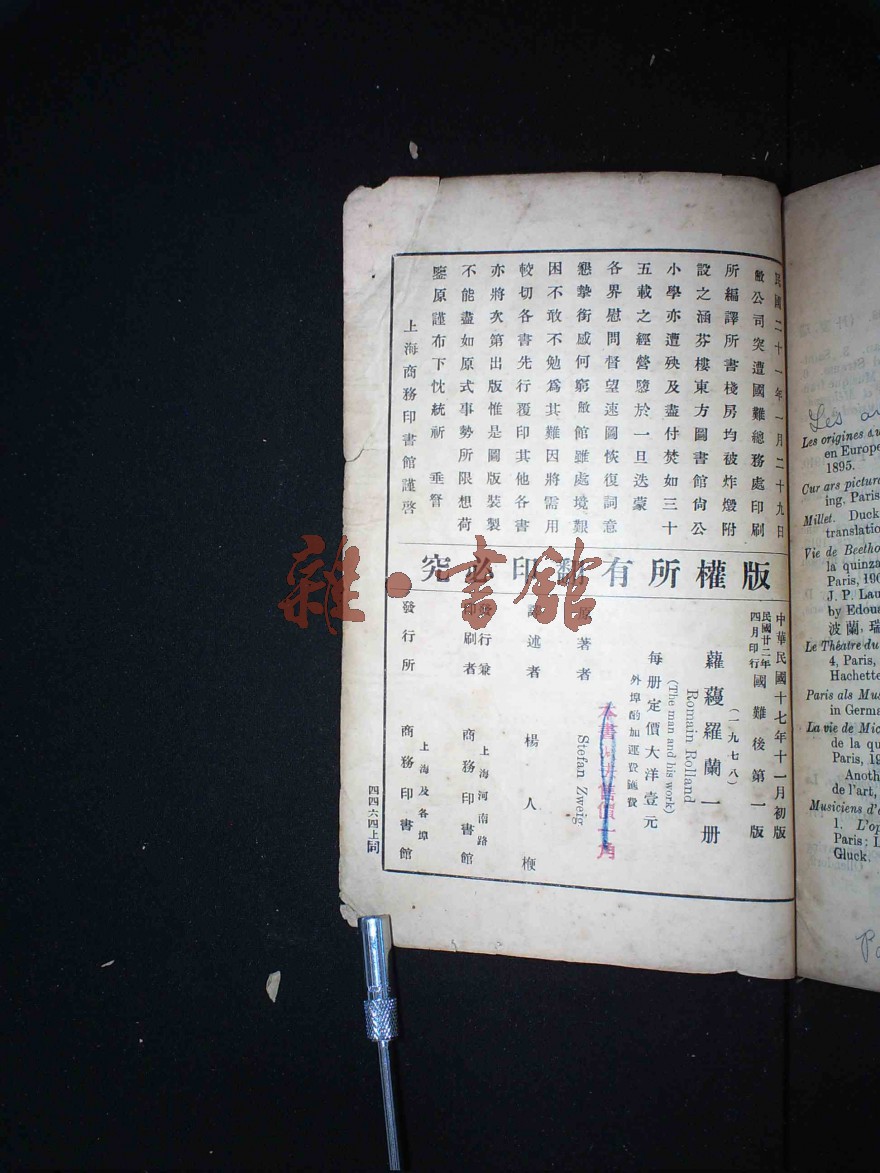 民國二十一年一月二十九日
敝公司突遭國難總務處印刷
所編譯所書棧房均被炸燬附
設之涵芬樓東方圖書館尙公
小學亦遭殃及盡付焚如三十
五載之經營隳於一旦迭蒙
各界慰問督望速圖恢復詞意
懇摯銜感何窮敝館雖處境艱
困不敢不勉爲其難因將需用
較切各書先行覆印其他各書
亦將次第出版惟是圖版裝製
不能盡如原式事勢所限想荷
鑒原謹布下忱統祈 垂詧
上海商務印書館謹啓
版權所有翻印必究
中華民國十七年十一月初版
民國廿二年四月印行 國難後第一版
(一九七八)
蘿蔓羅蘭一册
Romain Rolland
(The man and his work)
每册定價大洋壹元
外埠酌加運費匯費
本書 售價一角
原著者 Stefan Zweig
譯述者 楊人楩
發行兼印刷者 上海河南路 商務印書館
發行所 上海及各埠 商務印書館
四四六四上同
雜·書館
Les origines
en Europe
1895.
Cur ars pictur
ing, Paris
Millet. Duck
translatio
Vie de Beetho
la quinza
Paris, 190
J. P. Lau
by Edoua
波蘭,瑞
Le Théatre du
4, Paris,
Hachette
Paris als Mus
in Germa
La vie de Mic
de la qu
Paris, 19
Anoth
de l'art,
Musiciens d'
1. L'op
Paris; L
Gluck.